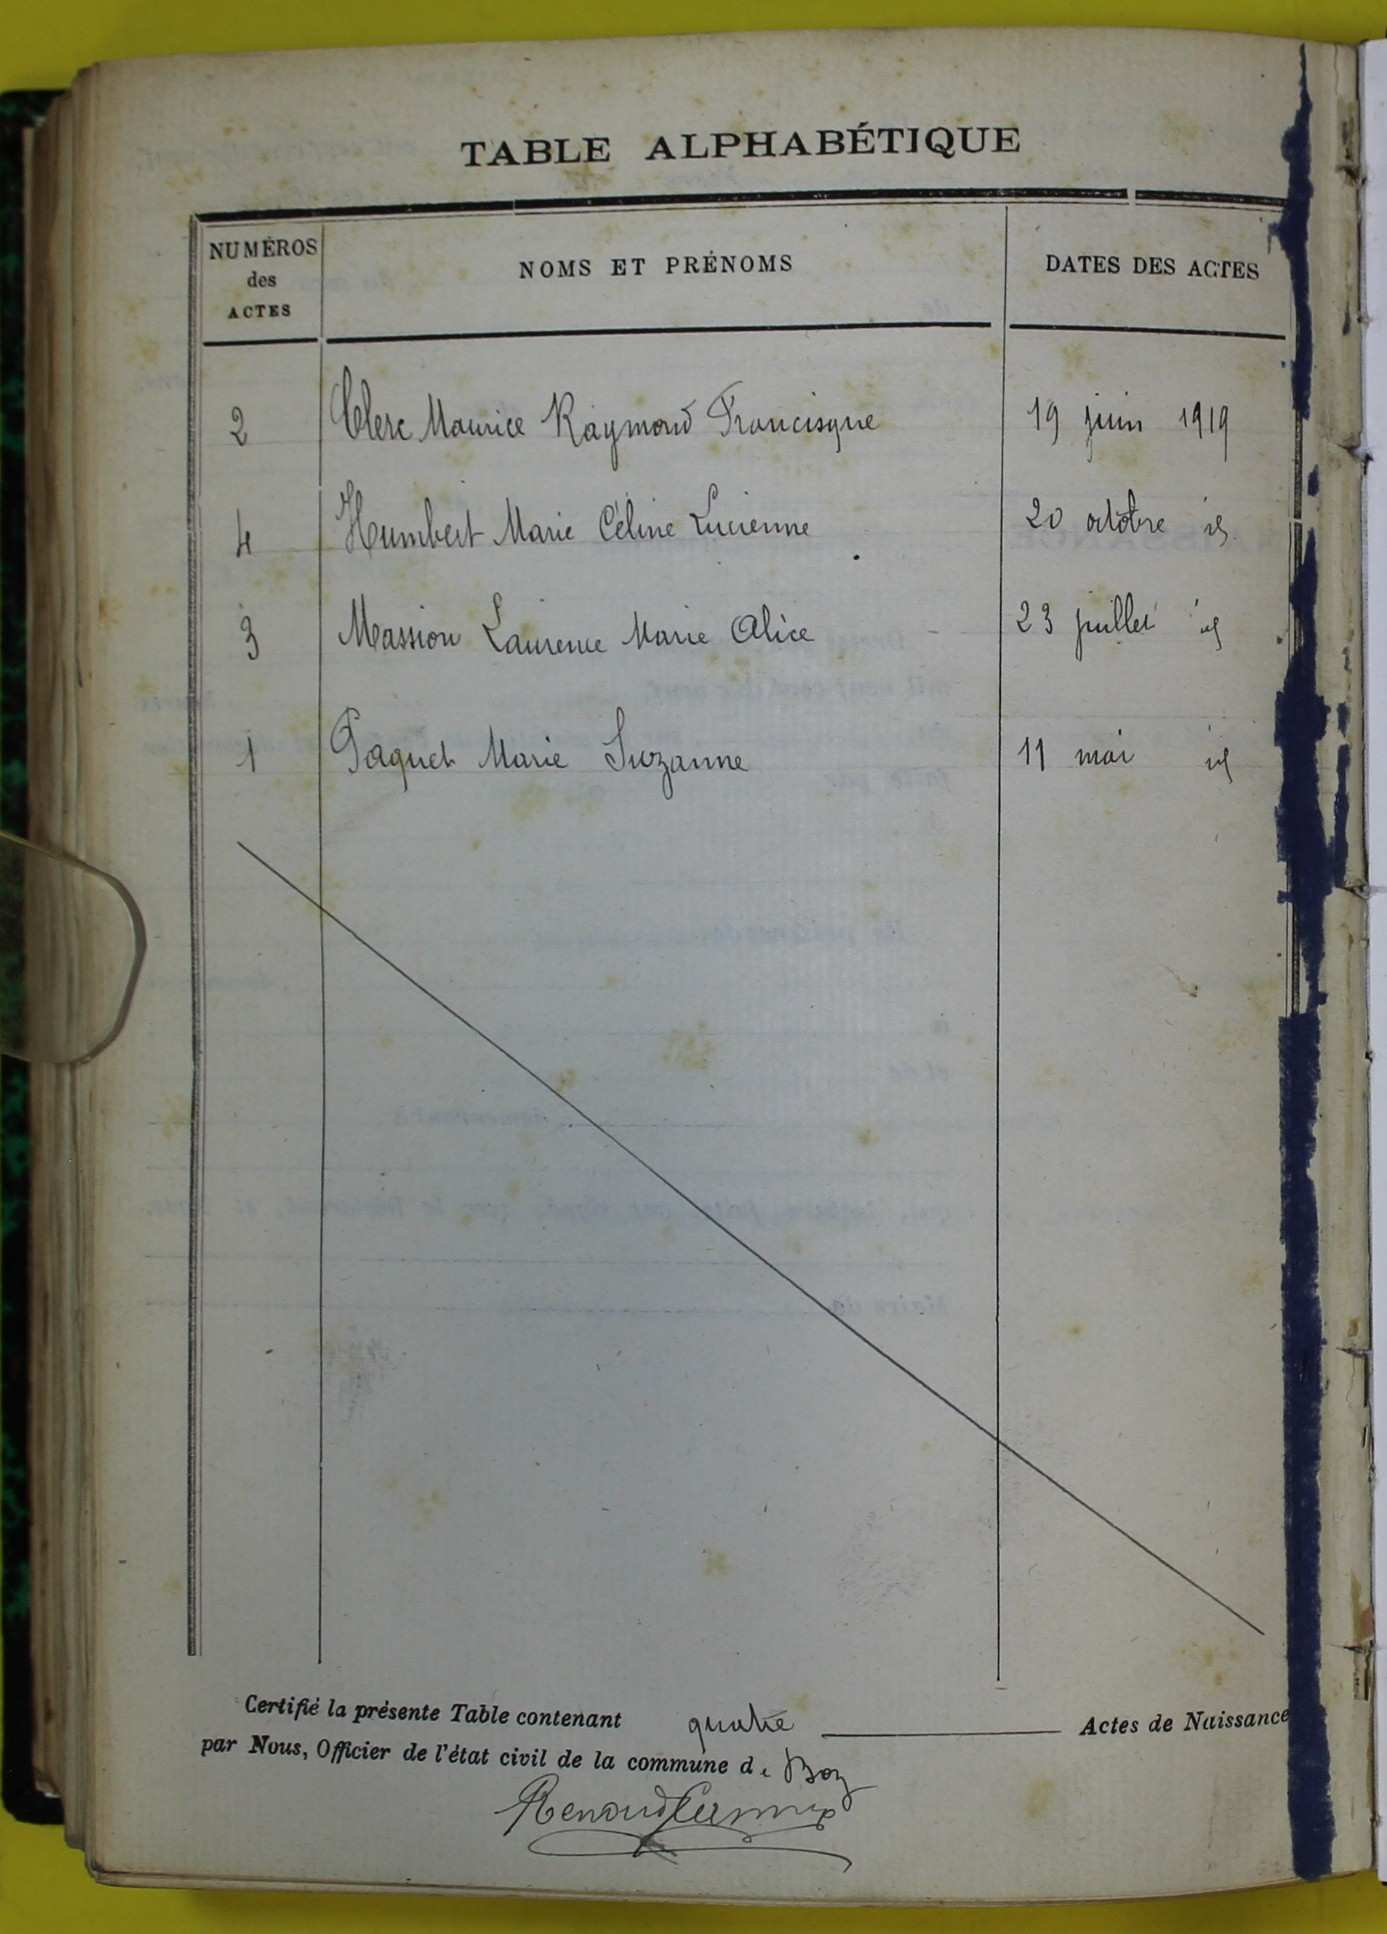 TABLE ALPHABÉTIQUE
NUMÉROS des ACTES NOMS ET PRÉNOMS DATES DES ACTES
2 Clerc Maurice Raymond Francisque 19 juin 1919
4 Humbert Marie Céline Lucienne 20 octobre id
3 Massion Laurence Marie Alice 23 juillet id
1 Paquet Marie Suzanne 11 mai id
Certifié la présente Table contenant quatre Actes de Naissance
par Nous, Officier de l'état civil de la commune de Boz
Renoud